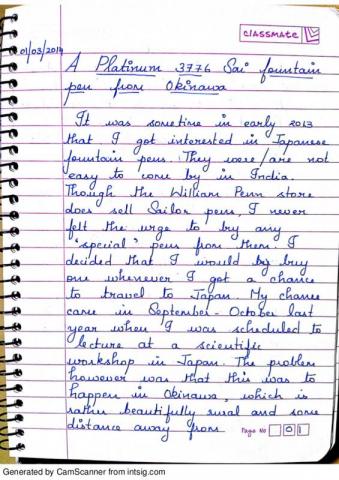 CLASSMATE
01/03/2014
A Platinum 3776 Sai fountain
pen from Okinawa
It was sometime in early 2013
that I got interested in Japanese
fountain pens. They were/are not
easy to come by in India.
Though the William Penn store
does sell Sailor pens, I never
felt the urge to buy any
"special" pens from them. I
decided that I would buy
one whenever I got a chance
to travel to Japan. My chance
came in September-October last
year when I was scheduled to
lecture at a scientific
workshop in Japan. The problem
however was that this was to
happen in Okinawa, which is
rather beautifully rural and some
distance away from
Page No 01
Generated by CamScanner from intsig.com